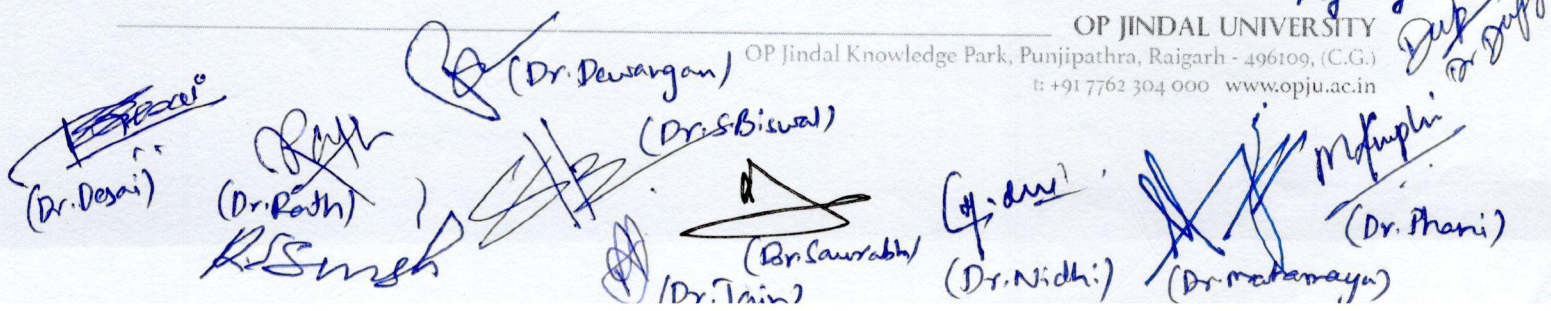 OP JINDAL UNIVERSITY
OP Jindal Knowledge Park, Punjipathra, Raigarh - 496109, (C.G.)
t: +91 7762 304 000 www.opju.ac.in
(Dr. Dewangan)
(Dr. S. Biswal)
(Dr. Desai)
(Dr. Rath)
R.S Singh
(Dr. Saurabh)
(Dr. Jain)
(Dr. Nidhi)
(Dr. Mahamaya)
(Dr. Phani)